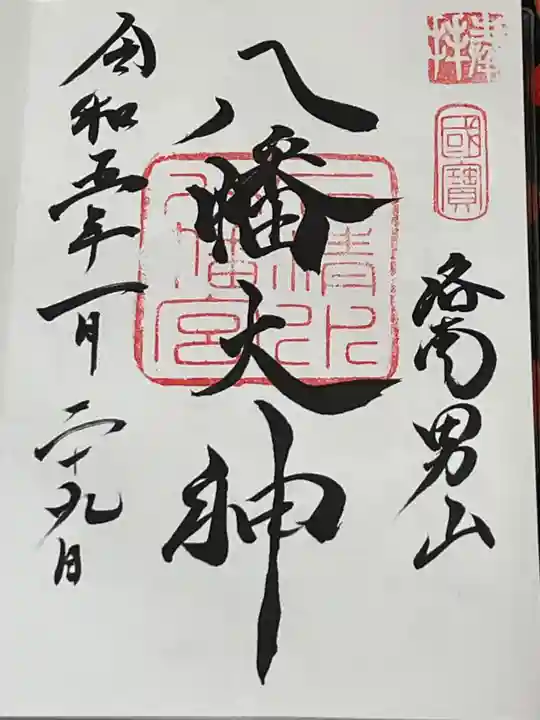 奉拝
國寶
洛南男山
八幡大神
石清水
八幡宮
令和五年一月二十九日